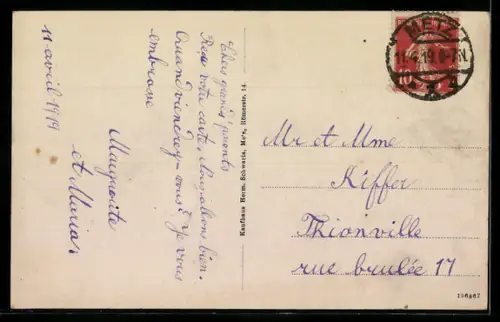 11 avril 1919
Chers grands parents
Reçu votre carte. Nous allons bien.
Quand viendrez-vous? Je vous
embrasse
Marguerite
et Maria
Kaufhaus Herm. Schwartz, Metz, Römerstr. 14.
METZ
11.4.19.6-7N.
10
Mr et Mme
Kiffer
Thionville
rue brulée 17
196867